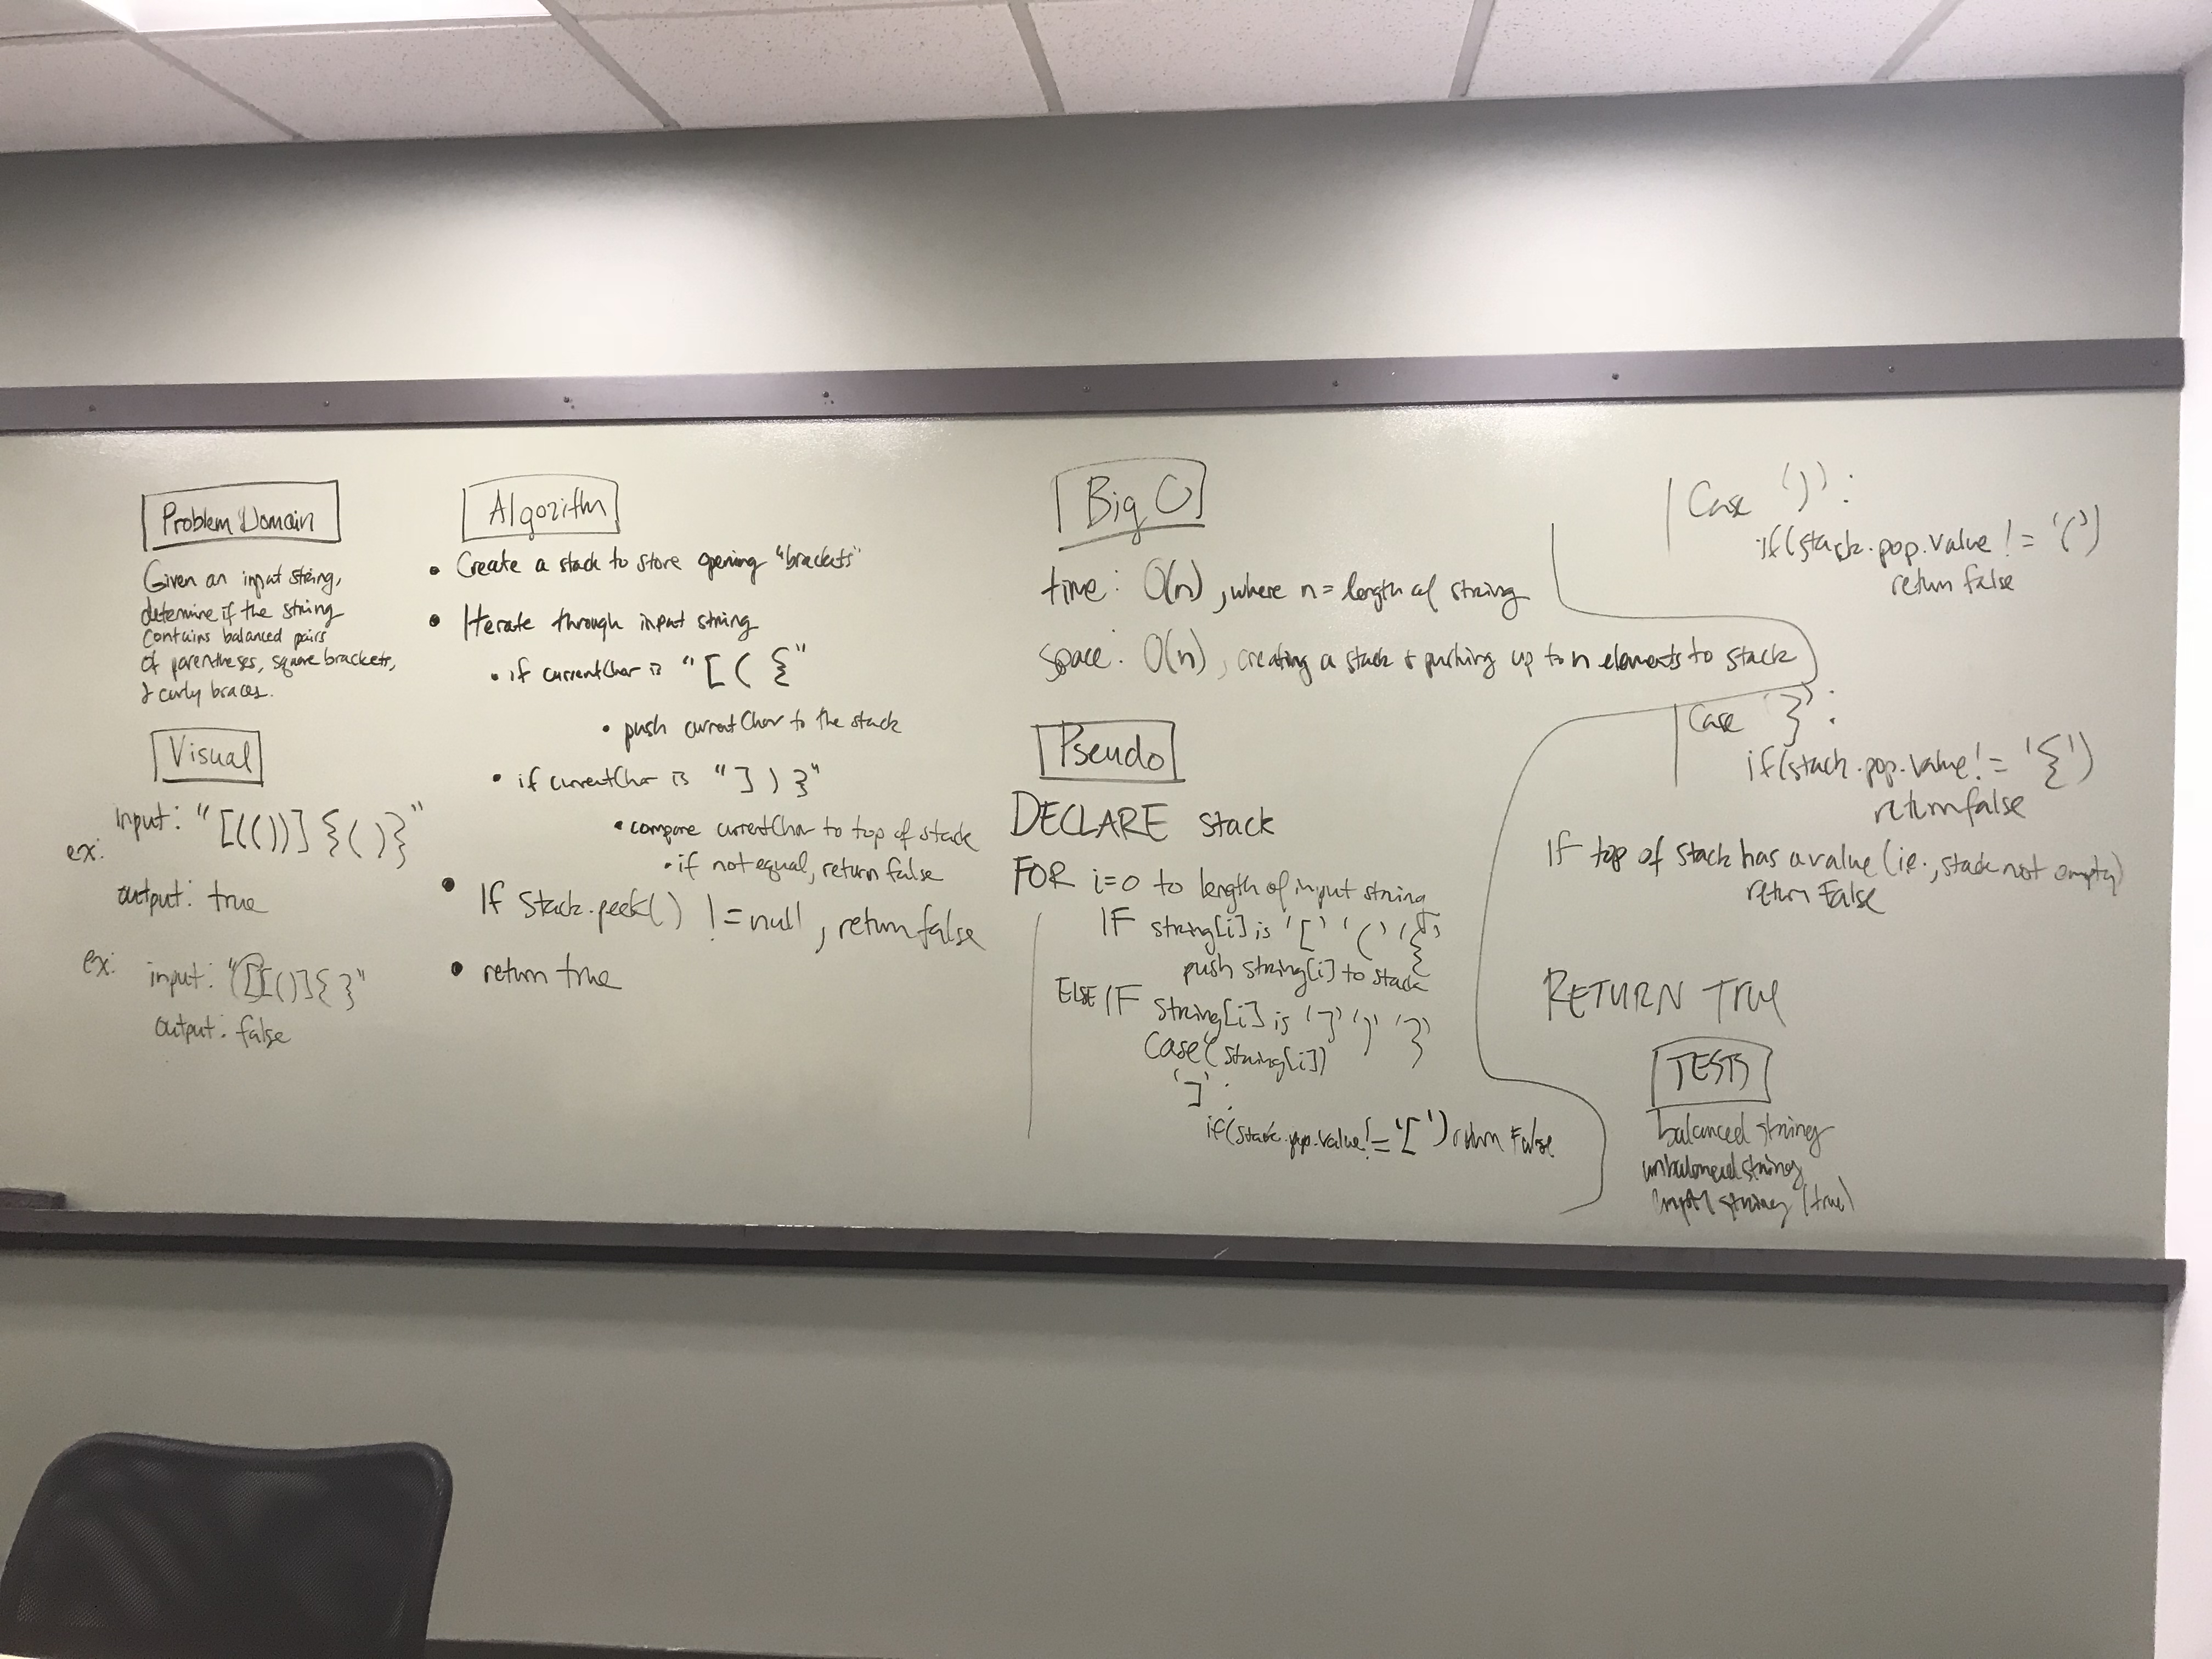 Problem Domain
Given an input string,
determine if the string
contains balanced pairs
of parentheses, square brackets,
& curly braces.
Visual
ex: input: "[(())]{()}"
output: true
ex: input: "[()]{}"
output: false
Algorithm
• Create a stack to store opening "brackets"
• Iterate through input string
• if currentChar is "[ ( {"
• push currentChar to the stack
• if currentChar is "] ) }"
• compare currentChar to top of stack
• if not equal, return false
• If Stack.peek() != null, return false
• return true
Big O
time: O(n), where n = length of string
space: O(n), creating a stack & pushing up to n elements to stack
Pseudo
DECLARE stack
FOR i=0 to length of input string
IF string[i] is '[' '(' '{'
push string[i] to stack
ELSE IF string[i] is ']' ')' '}'
Case(string[i])
']':
if(stack.pop.value != '[') return False
Case ')':
if(stack.pop.value != '(')
return false
Case '}':
if(stack.pop.value != '{')
return false
If top of stack has a value (ie., stack not empty)
return False
RETURN True
TESTS
balanced string
unbalanced string
empty string (true)